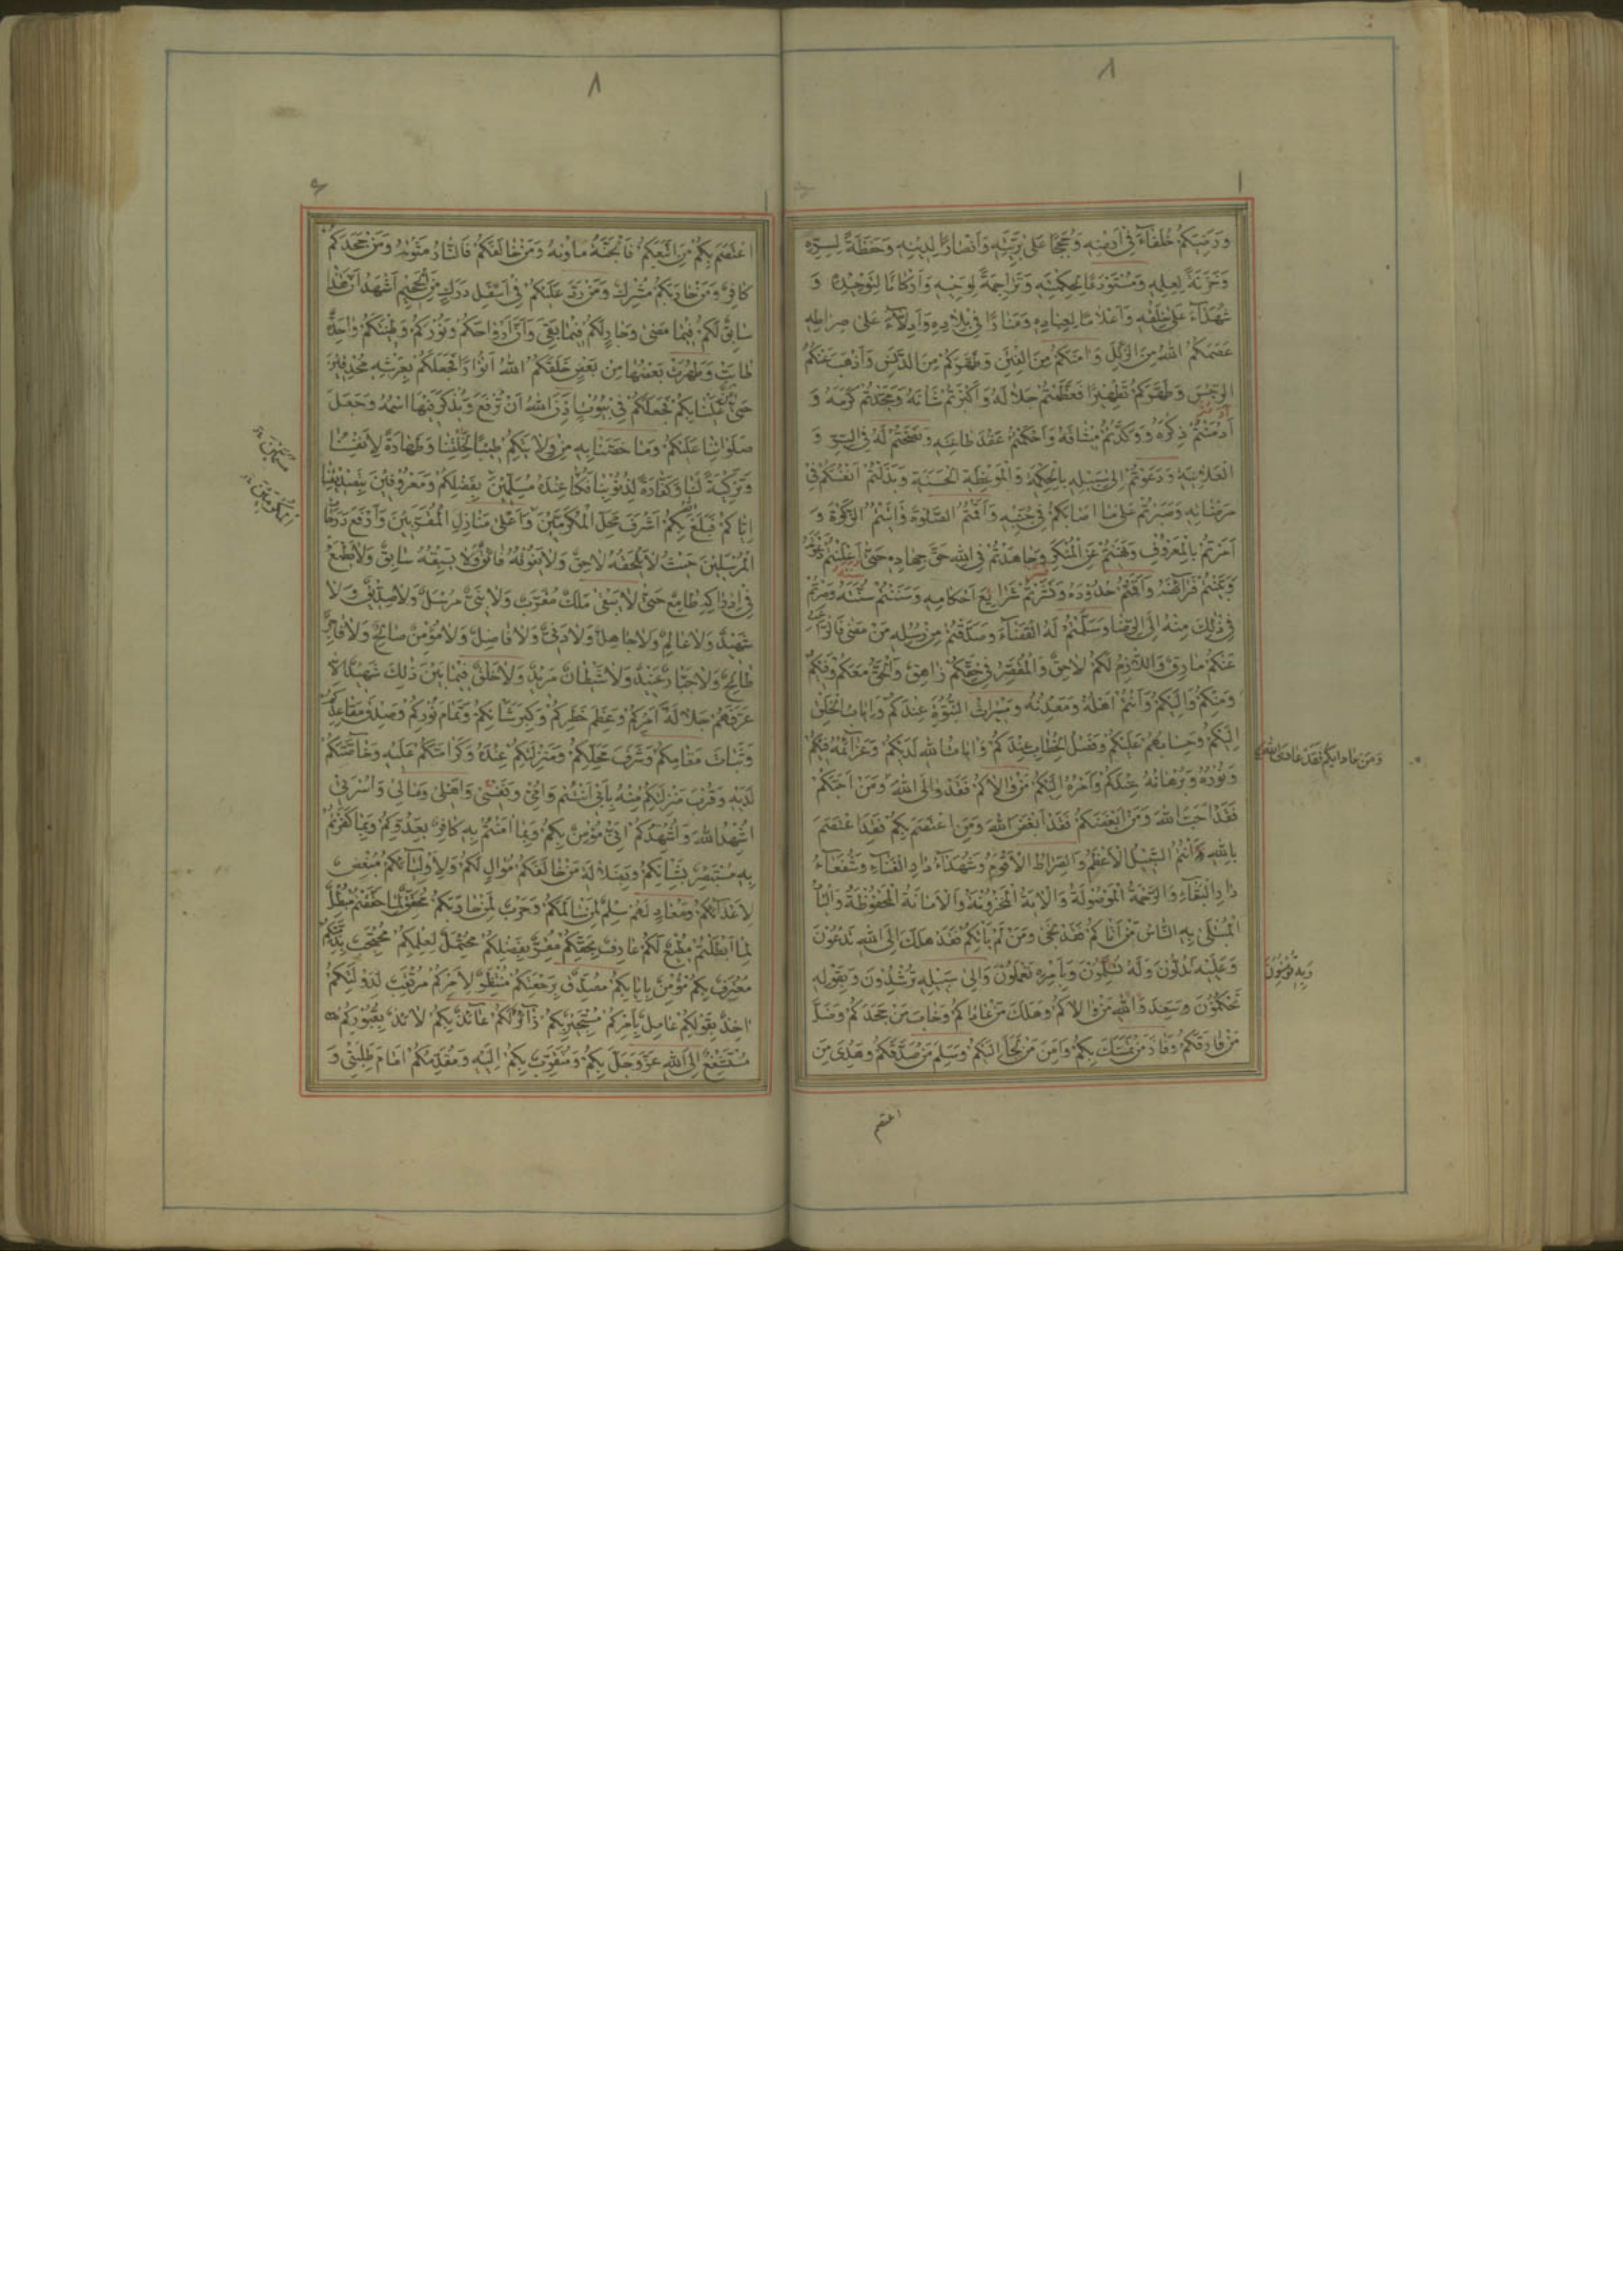 ٨
وَرَضِيَكُمْ خُلَفَآءَ فِي اَرْضِهِ وَحُجَجًا عَلٰى بَرِيَّتِهِ وَاَنْصَارًا لِدِينِهِ وَحَفَظَةً لِسِرِّهِ
وَخَزَنَةً لِعِلْمِهِ وَمُسْتَوْدَعًا لِحِكْمَتِهِ وَتَرَاجِمَةً لِوَحْيِهِ وَاَرْكَانًا لِتَوْحِيدِهِ وَ
شُهَدَآءَ عَلٰى خَلْقِهِ وَاَعْلَامًا لِعِبَادِهِ وَمَنَارًا فِي بِلَادِهِ وَاَدِلَّاءَ عَلٰى صِرَاطِهِ
عَصَمَكُمُ اللهُ مِنَ الزَّلَلِ وَاٰمَنَكُمْ مِنَ الْفِتَنِ وَطَهَّرَكُمْ مِنَ الدَّنَسِ وَاَذْهَبَ عَنْكُمُ
الرِّجْسَ وَطَهَّرَكُمْ تَطْهِيرًا فَعَظَّمْتُمْ جَلَالَهُ وَاَكْبَرْتُمْ شَانَهُ وَمَجَّدْتُمْ كَرَمَهُ وَ
اَدَمْتُمْ ذِكْرَهُ وَوَكَّدْتُمْ مِيثَاقَهُ وَاَحْكَمْتُمْ عَقْدَ طَاعَتِهِ وَنَصَحْتُمْ لَهُ فِي السِّرِّ وَ
الْعَلَانِيَةِ وَدَعَوْتُمْ اِلٰى سَبِيلِهِ بِالْحِكْمَةِ وَالْمَوْعِظَةِ الْحَسَنَةِ وَبَذَلْتُمْ اَنْفُسَكُمْ فِي
مَرْضَاتِهِ وَصَبَرْتُمْ عَلٰى مَا اَصَابَكُمْ فِي جَنْبِهِ وَاَقَمْتُمُ الصَّلٰوةَ وَاٰتَيْتُمُ الزَّكٰوةَ وَ
اَمَرْتُمْ بِالْمَعْرُوفِ وَنَهَيْتُمْ عَنِ الْمُنْكَرِ وَجَاهَدْتُمْ فِي اللهِ حَقَّ جِهَادِهِ حَتّٰى اَعْلَنْتُمْ دَعْوَتَهُ
وَبَيَّنْتُمْ فَرَآئِضَهُ وَاَقَمْتُمْ حُدُودَهُ وَنَشَرْتُمْ شَرَايِعَ اَحْكَامِهِ وَسَنَنْتُمْ سُنَّتَهُ وَصِرْتُمْ
فِي ذٰلِكَ مِنْهُ اِلَى الرِّضَا وَسَلَّمْتُمْ لَهُ الْقَضَآءَ وَصَدَّقْتُمْ مِنْ رُسُلِهِ مَنْ مَضٰى فَالرَّاغِبُ
عَنْكُمْ مَارِقٌ وَاللَّازِمُ لَكُمْ لَاحِقٌ وَالْمُقَصِّرُ فِي حَقِّكُمْ زَاهِقٌ وَالْحَقُّ مَعَكُمْ وَفِيكُمْ
وَمِنْكُمْ وَاِلَيْكُمْ وَاَنْتُمْ اَهْلُهُ وَمَعْدِنُهُ وَمِيرَاثُ النُّبُوَّةِ عِنْدَكُمْ وَاِيَابُ الْخَلْقِ
اِلَيْكُمْ وَحِسَابُهُمْ عَلَيْكُمْ وَفَصْلُ الْخِطَابِ عِنْدَكُمْ وَاٰيَاتُ اللهِ لَدَيْكُمْ وَعَزَآئِمُهُ فِيكُمْ
وَنُورُهُ وَبُرْهَانُهُ عِنْدَكُمْ وَاَمْرُهُ اِلَيْكُمْ مَنْ وَالَاكُمْ فَقَدْ وَالَى اللهَ وَمَنْ اَحَبَّكُمْ
وَمَنْ عَادَاكُمْ فَقَدْ عَادَى اللهَ
فَقَدْ اَحَبَّ اللهَ وَمَنْ اَبْغَضَكُمْ فَقَدْ اَبْغَضَ اللهَ وَمَنِ اعْتَصَمَ بِكُمْ فَقَدِ اعْتَصَمَ
بِاللهِ اَنْتُمُ السَّبِيلُ الْاَعْظَمُ وَالصِّرَاطُ الْاَقْوَمُ وَشُهَدَآءُ دَارِ الْفَنَآءِ وَشُفَعَآءُ
دَارِ الْبَقَآءِ وَالرَّحْمَةُ الْمَوْصُولَةُ وَالْاٰيَةُ الْمَخْزُونَةُ وَالْاَمَانَةُ الْمَحْفُوظَةُ وَالْبَابُ
الْمُبْتَلٰى بِهِ النَّاسُ مَنْ اَتَاكُمْ فَقَدْ نَجٰى وَمَنْ لَمْ يَاْتِكُمْ فَقَدْ هَلَكَ اِلَى اللهِ تَدْعُونَ
وَعَلَيْهِ تَدُلُّونَ وَلَهُ تُسَلِّمُونَ وَبِاَمْرِهِ تَعْمَلُونَ وَاِلٰى سَبِيلِهِ تُرْشِدُونَ وَبِقَوْلِهِ
وَبِهِ تُؤْمِنُونَ
تَحْكُمُونَ وَسَعِدَ وَاللهِ مَنْ وَالَاكُمْ وَهَلَكَ مَنْ عَادَاكُمْ وَخَابَ مَنْ جَحَدَكُمْ وَضَلَّ
مَنْ فَارَقَكُمْ وَفَازَ مَنْ تَمَسَّكَ بِكُمْ وَاَمِنَ مَنْ لَجَاَ اِلَيْكُمْ وَسَلِمَ مَنْ صَدَّقَكُمْ وَهُدِىَ مَنِ
اعتصم
٨
اعْتَصَمَ بِكُمْ مَنِ اتَّبَعَكُمْ فَالْجَنَّةُ مَاْوٰيهُ وَمَنْ خَالَفَكُمْ فَالنَّارُ مَثْوٰيهُ وَمَنْ جَحَدَكُمْ
كَافِرٌ وَمَنْ حَارَبَكُمْ مُشْرِكٌ وَمَنْ رَدَّ عَلَيْكُمْ فِي اَسْفَلِ دَرَكٍ مِنَ الْجَحِيمِ اَشْهَدُ اَنَّ هٰذَا
سَابِقٌ لَكُمْ فِيمَا مَضٰى وَجَارٍ لَكُمْ فِيمَا بَقِيَ وَاَنَّ اَرْوَاحَكُمْ وَنُورَكُمْ وَطِينَتَكُمْ وَاحِدَةٌ
طَابَتْ وَطَهُرَتْ بَعْضُهَا مِنْ بَعْضٍ خَلَقَكُمُ اللهُ اَنْوَارًا فَجَعَلَكُمْ بِعَرْشِهِ مُحْدِقِينَ
حَتّٰى مَنَّ عَلَيْنَا بِكُمْ فَجَعَلَكُمْ فِي بُيُوتٍ اَذِنَ اللهُ اَنْ تُرْفَعَ وَيُذْكَرَ فِيهَا اسْمُهُ وَجَعَلَ
صَلَوَاتِنَا عَلَيْكُمْ وَمَا خَصَّنَا بِهِ مِنْ وِلَايَتِكُمْ طِيبًا لِخَلْقِنَا وَطَهَارَةً لِاَنْفُسِنَا
وَتَزْكِيَةً لَنَا وَكَفَّارَةً لِذُنُوبِنَا فَكُنَّا عِنْدَهُ مُسَلِّمِينَ بِفَضْلِكُمْ وَمَعْرُوفِينَ بِتَصْدِيقِنَا
اِيَّاكُمْ فَبَلَغَ اللهُ بِكُمْ اَشْرَفَ مَحَلِّ الْمُكَرَّمِينَ وَاَعْلٰى مَنَازِلِ الْمُقَرَّبِينَ وَاَرْفَعَ دَرَجَاتِ
الْمُرْسَلِينَ حَيْثُ لَا يَلْحَقُهُ لَاحِقٌ وَلَا يَفُوقُهُ فَائِقٌ وَلَا يَسْبِقُهُ سَابِقٌ وَلَا يَطْمَعُ
فِي اِدْرَاكِهِ طَامِعٌ حَتّٰى لَا يَبْقٰى مَلَكٌ مُقَرَّبٌ وَلَا نَبِيٌّ مُرْسَلٌ وَلَا صِدِّيقٌ وَلَا
شَهِيدٌ وَلَا عَالِمٌ وَلَا جَاهِلٌ وَلَا دَنِيٌّ وَلَا فَاضِلٌ وَلَا مُؤْمِنٌ صَالِحٌ وَلَا فَاجِرٌ
طَالِحٌ وَلَا جَبَّارٌ عَنِيدٌ وَلَا شَيْطَانٌ مَرِيدٌ وَلَا خَلْقٌ فِيمَا بَيْنَ ذٰلِكَ شَهِيدٌ اِلَّا
عَرَّفَهُمْ جَلَالَةَ اَمْرِكُمْ وَعِظَمَ خَطَرِكُمْ وَكِبَرَ شَاْنِكُمْ وَتَمَامَ نُورِكُمْ وَصِدْقَ مَقَاعِدِكُمْ
وَثَبَاتَ مَقَامِكُمْ وَشَرَفَ مَحَلِّكُمْ وَمَنْزِلَتِكُمْ عِنْدَهُ وَكَرَامَتَكُمْ عَلَيْهِ وَخَاصَّتَكُمْ
لَدَيْهِ وَقُرْبَ مَنْزِلَتِكُمْ مِنْهُ بِاَبِي اَنْتُمْ وَاُمِّي وَنَفْسِي وَاَهْلِي وَمَالِي وَاُسْرَتِي
اُشْهِدُ اللهَ وَاُشْهِدُكُمْ اَنِّي مُؤْمِنٌ بِكُمْ وَبِمَا اٰمَنْتُمْ بِهِ كَافِرٌ بِعَدُوِّكُمْ وَبِمَا كَفَرْتُمْ
بِهِ مُسْتَبْصِرٌ بِشَاْنِكُمْ وَبِضَلَالَةِ مَنْ خَالَفَكُمْ مُوَالٍ لَكُمْ وَلِاَوْلِيَآئِكُمْ مُبْغِضٌ
لِاَعْدَآئِكُمْ وَمُعَادٍ لَهُمْ سِلْمٌ لِمَنْ سَالَمَكُمْ وَحَرْبٌ لِمَنْ حَارَبَكُمْ مُحَقِّقٌ لِمَا حَقَّقْتُمْ مُبْطِلٌ
لِمَا اَبْطَلْتُمْ مُطِيعٌ لَكُمْ عَارِفٌ بِحَقِّكُمْ مُقِرٌّ بِفَضْلِكُمْ مُحْتَمِلٌ لِعِلْمِكُمْ مُحْتَجِبٌ بِذِمَّتِكُمْ
مُعْتَرِفٌ بِكُمْ مُؤْمِنٌ بِاِيَابِكُمْ مُصَدِّقٌ بِرَجْعَتِكُمْ مُنْتَظِرٌ لِاَمْرِكُمْ مُرْتَقِبٌ لِدَوْلَتِكُمْ
اٰخِذٌ بِقَوْلِكُمْ عَامِلٌ بِاَمْرِكُمْ مُسْتَجِيرٌ بِكُمْ زَآئِرٌ لَكُمْ عَآئِذٌ بِكُمْ لَائِذٌ بِقُبُورِكُمْ
مُسْتَشْفِعٌ اِلَى اللهِ عَزَّ وَجَلَّ بِكُمْ وَمُتَقَرِّبٌ بِكُمْ اِلَيْهِ وَمُقَدِّمُكُمْ اَمَامَ طَلِبَتِي وَ